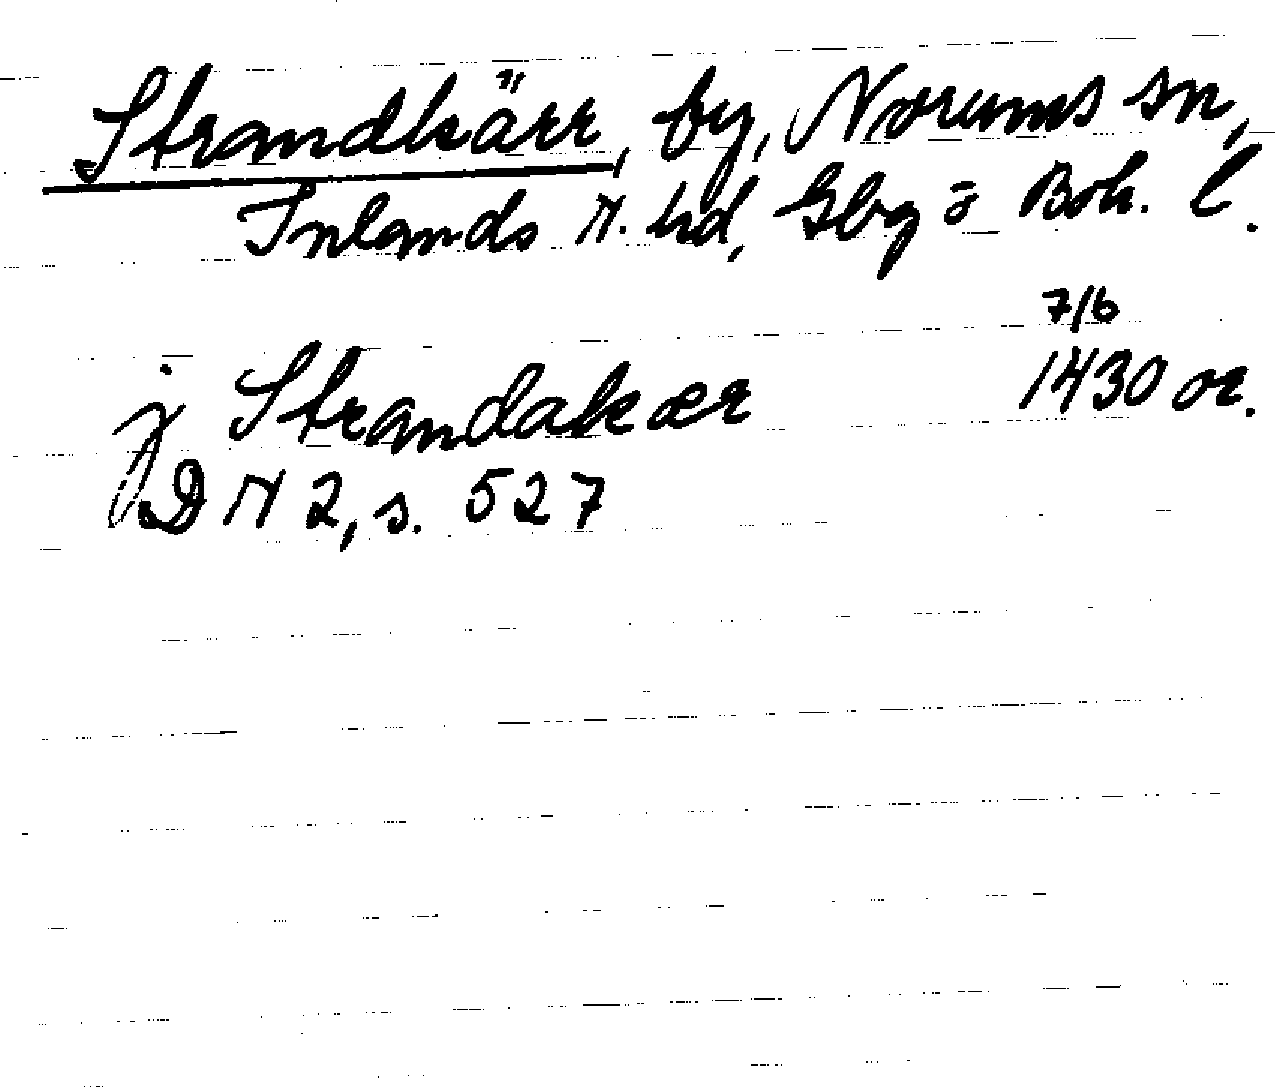 Strandkärr, by, Norums sn,
Inlands N. hd, Gbg o Boh. l.
7/6
j Strandakær 1430 or.
DN 2, s. 527